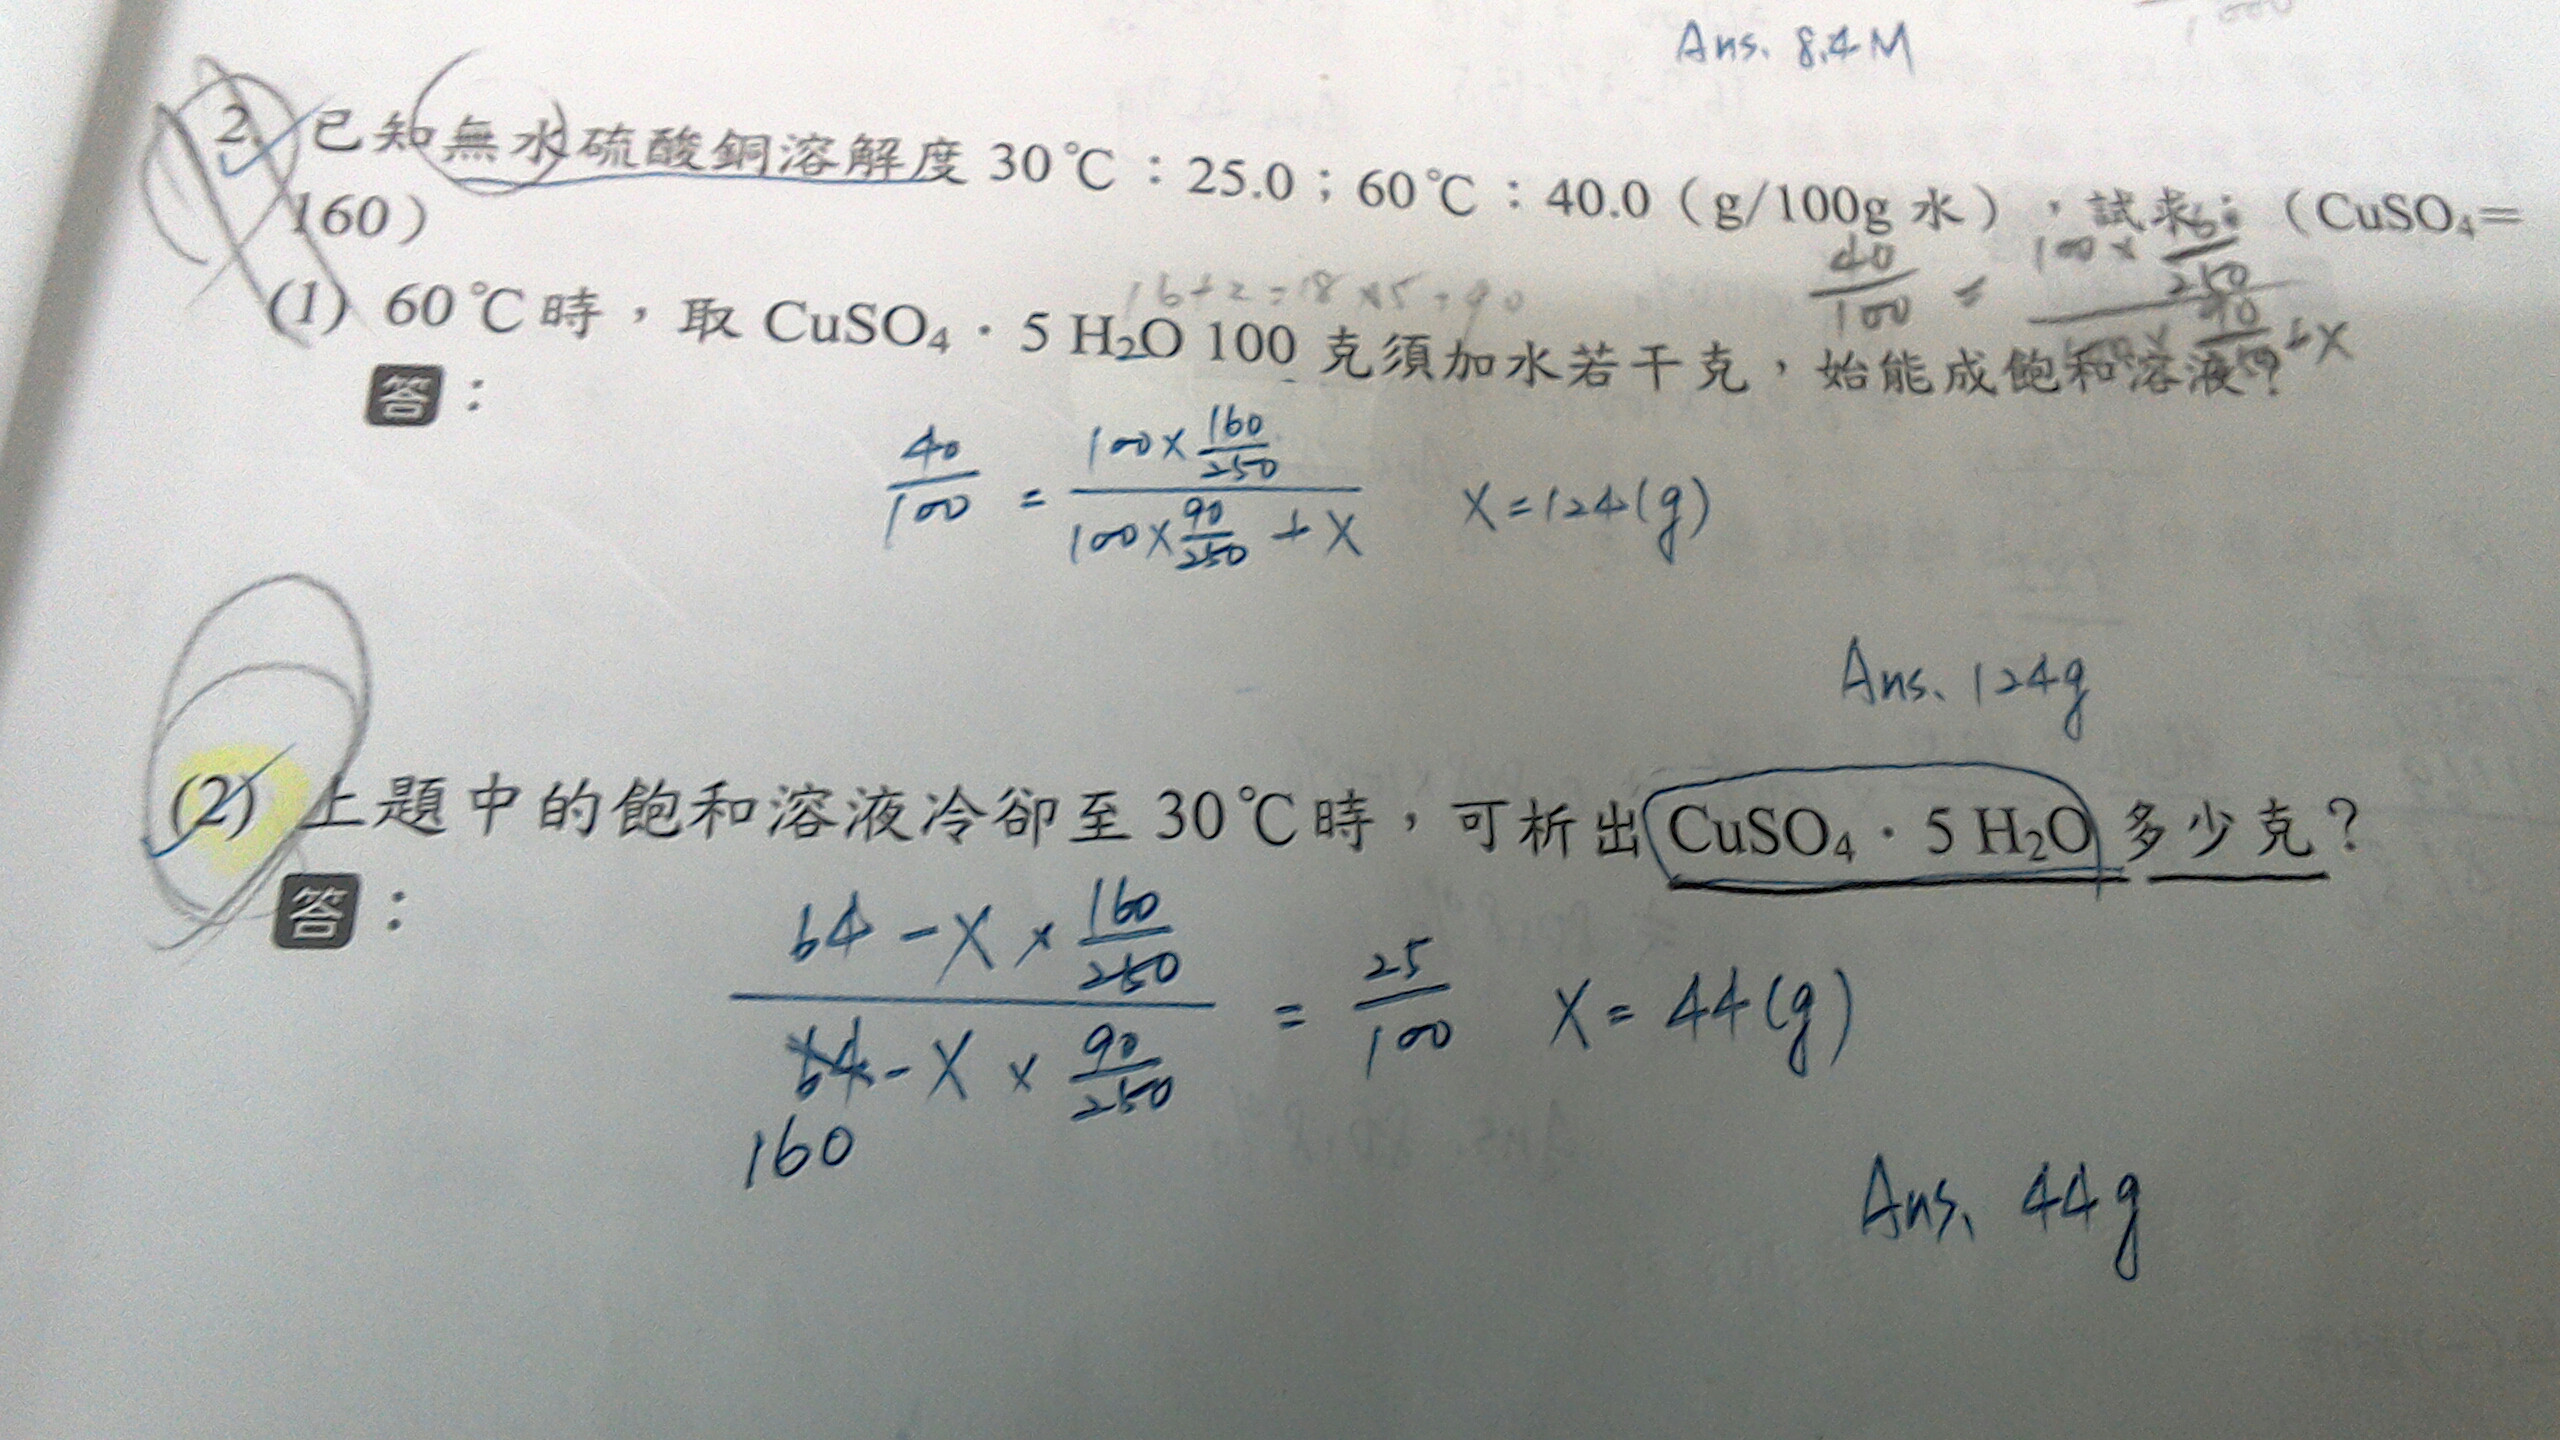 Ans. 8.4M
2. 已知無水硫酸銅溶解度 30℃：25.0；60℃：40.0（g/100g 水），試求：（CuSO₄＝
160）
16+2=18×5=90
40/100 =
(1) 60℃時，取 CuSO₄．5 H₂O 100 克須加水若干克，始能成飽和溶液？
答：
40/100 = (100×160/250)/(100×90/250 + X) X=124(g)
Ans. 124g
(2) 上題中的飽和溶液冷卻至 30℃時，可析出 CuSO₄．5 H₂O 多少克？
答：
64 - X × 160/250
- X × 90/250 = 25/100 X = 44(g)
160
Ans. 44g